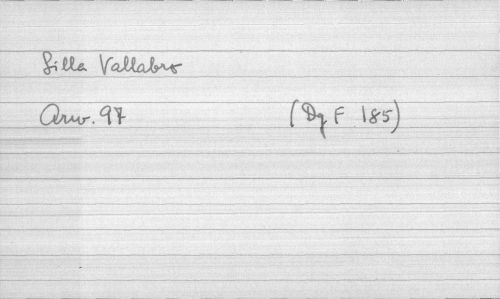 Lilla Vallabro
Arw. 97 (Dg F 185)